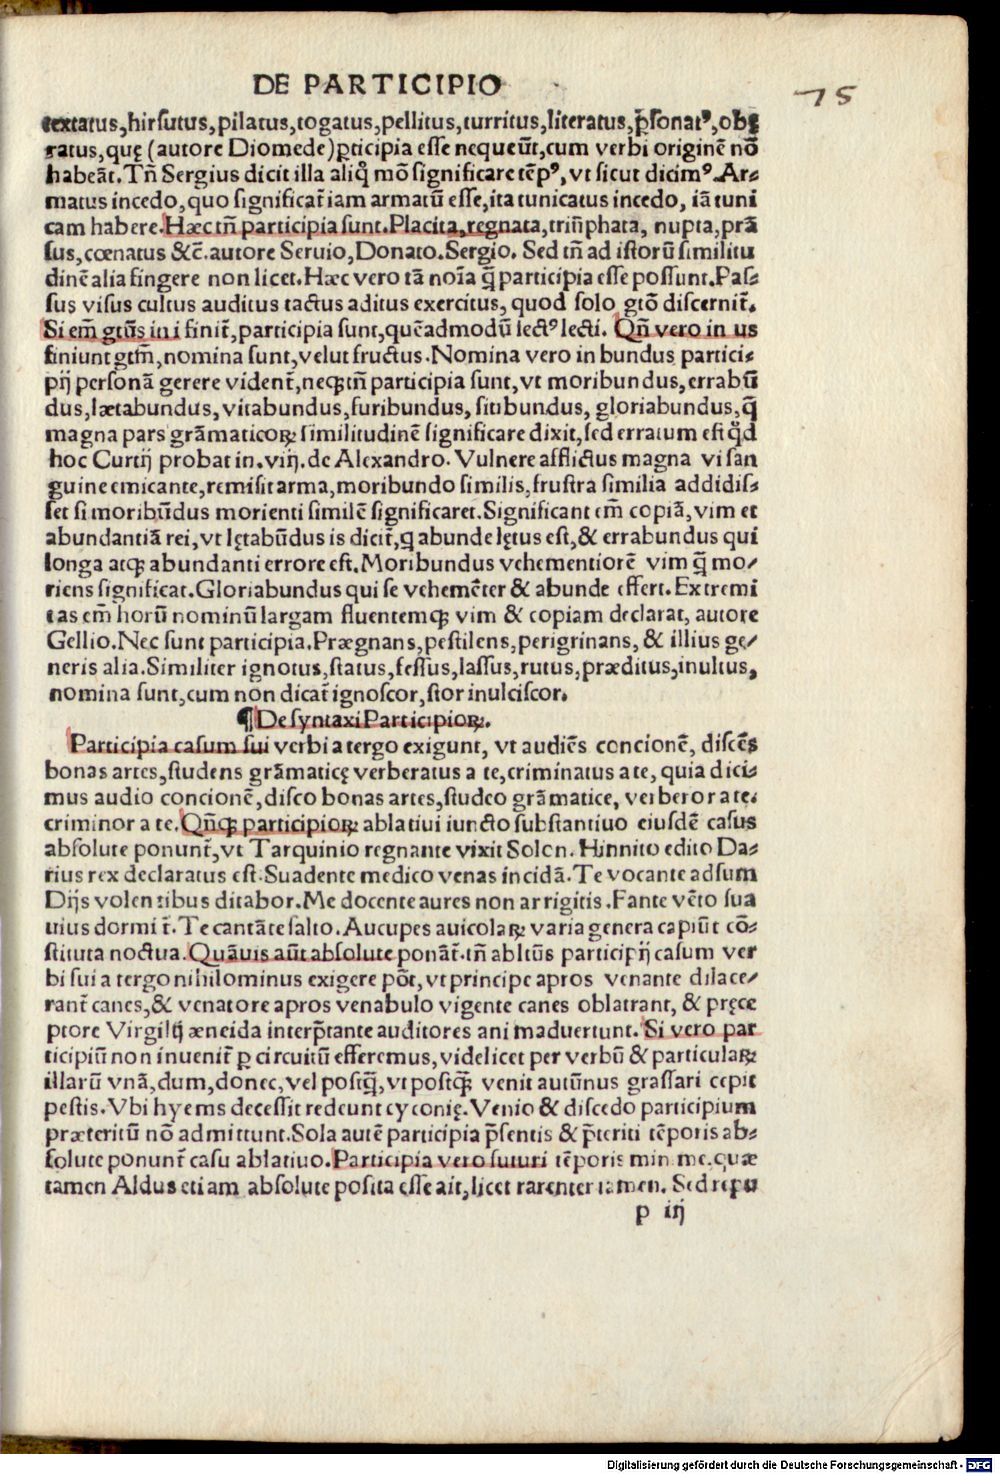 DE PARTICIPIO
75
textatus,hirsutus,pilatus,togatus,pellitus,turritus,literatus,p̄sonatꝰ,obę
ratus,quę (autore Diomede)ꝑticipia esse nequeūt,cum verbi originē nō
habeāt.Tn̄ Sergius dicit illa aliq̊ mō significare tēpꝰ,vt sicut dicimꝰ.Ar⸗
matus incedo,quo significat̄ iam armatū esse,ita tunicatus incedo, iā tuni
cam habere.Hæc tn̄ participia sunt.Placita,regnata,triūphata, nupta,prā
sus,cœnatus &c̄.autore Seruio,Donato.Sergio. Sed tn̄ ad istorū similitu
dinē alia fingere non licet.Hæc vero tā noīa q̄̄ participia esse possunt.Pas⸗
sus visus cultus auditus tactus aditus exercitus, quod solo gtō discernit̄.
Si em̄ gtūs in i finit̄,participia sunt,quēadmodū lectꝰ lecti. Qn̄ vero in us
finiunt gtm̄,nomina sunt,velut fructus.Nomina vero in bundus partici⸗
pij personā gerere vident̄,neqꝫ tn̄ participia sunt,vt moribundus,errabū
dus,lætabundus,vitabundus,furibundus, sitibundus, gloriabundus,q̄
magna pars grāmaticoꝝ similitudinē significare dixit,sed erratum est q̊d
hoc Curtij probat in.viij.de Alexandro. Vulnere afflictus magna vi san
guine emicante,remisit arma,moribundo similis,frustra similia addidis⸗
set si moribūdus morienti similē significaret.Significant em̄ copiā,vim et
abundantiā rei,vt lętabūdus is dicit̄,q abunde lętus est,& errabundus qui
longa atqꝫ abundanti errore est.Moribundus vehementiorē vim q̄̄ mo⸗
riens significat.Gloriabundus qui se vehemēter & abunde effert.Extremi
tas em̄ horū nominū largam fluentemqꝫ vim & copiam declarat, autore
Gellio.Nec sunt participia.Prægnans,pestilens,perigrinans, & illius ge⸗
neris alia.Similiter ignotus,status,fessus,lassus,rutus,præditus,inultus,
nomina sunt,cum non dicat̄ ignoscor,stor inulciscor.
¶De syntaxi Participioꝝ.
Participia casum sui verbi a tergo exigunt, vt audiēs concionē, discēs
bonas artes,studens grāmaticę verberatus a te,criminatus a te, quia dici⸗
mus audio concionē,disco bonas artes,studeo grāmatice, verberor a te.
criminor a te.Qn̄qꝫ participioꝝ ablatiui iuncto substantiuo eiusdē casus
absolute ponunt̄,vt Tarquinio regnante vixit Solon. Hinnito edito Da⸗
rius rex declaratus est.Suadente medico venas incidā.Te vocante adsum
Dijs volentibus ditabor.Me docente aures non arrigitis.Fante vēto sua
uius dormit̄.Te cantāte salto.Aucupes auicolaꝝ varia genera capiūt cō⸗
stituta noctua.Quāuis aūt absolute ponāt̄.tn̄ abltūs participij casum ver
bi sui a tergo nihilominus exigere pōt,vt principe apros venante dilace⸗
rant̄ canes,& venatore apros venabulo vigente canes oblatrant, & pręce
ptore Virgilij æneida interp̄tante auditores animaduertunt. Si vero par
ticipiū non inuenit̄ ꝑ circuitū efferemus,videlicet per verbū & particulaꝝ
illarū vnā,dum,donec,vel postq̄̄,vt postq̄̄ venit autūnus grassari cepit
pestis.Vbi hyems decessit redeunt cyconię.Venio & discedo participium
præteritū nō admittunt.Sola autē participia p̄sentis & p̄teriti tēporis ab⸗
solute ponunt̄ casu ablatiuo.Participia vero futuri tēporis minime.quæ
tamen Aldus etiam absolute posita esse ait,licet rarenter tamen. Sed repu
p iij
Digitalisierung gefördert durch die Deutsche Forschungsgemeinschaft - DFG